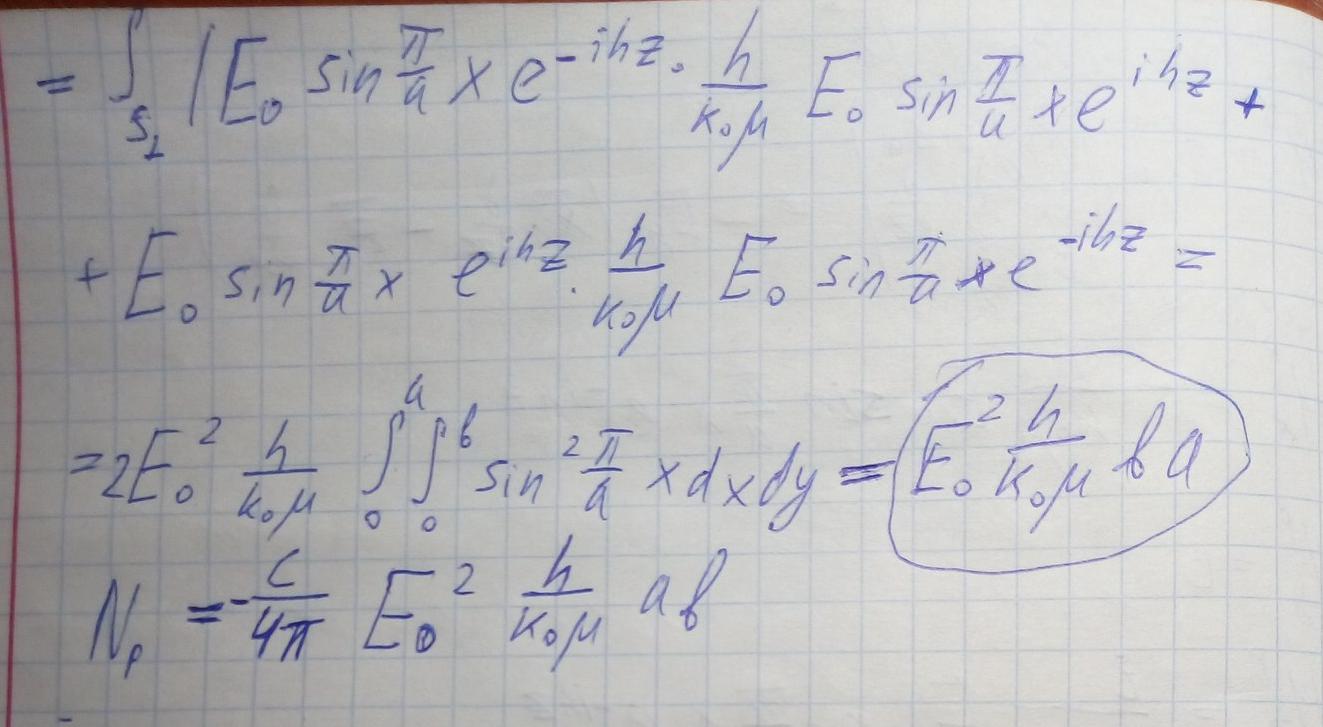 = ∫_{S⊥} | E₀ sin π/a x e^{-ihz} · h/(k₀μ) E₀ sin π/a x e^{ihz} +
+ E₀ sin π/a x e^{ihz} · h/(k₀μ) E₀ sin π/a x e^{-ihz} =
= 2E₀² h/(k₀μ) ∫₀^a ∫₀^в sin² π/a x dx dy = E₀² h/(k₀μ) в a
N_p = -c/(4π) E₀² h/(k₀μ) a в